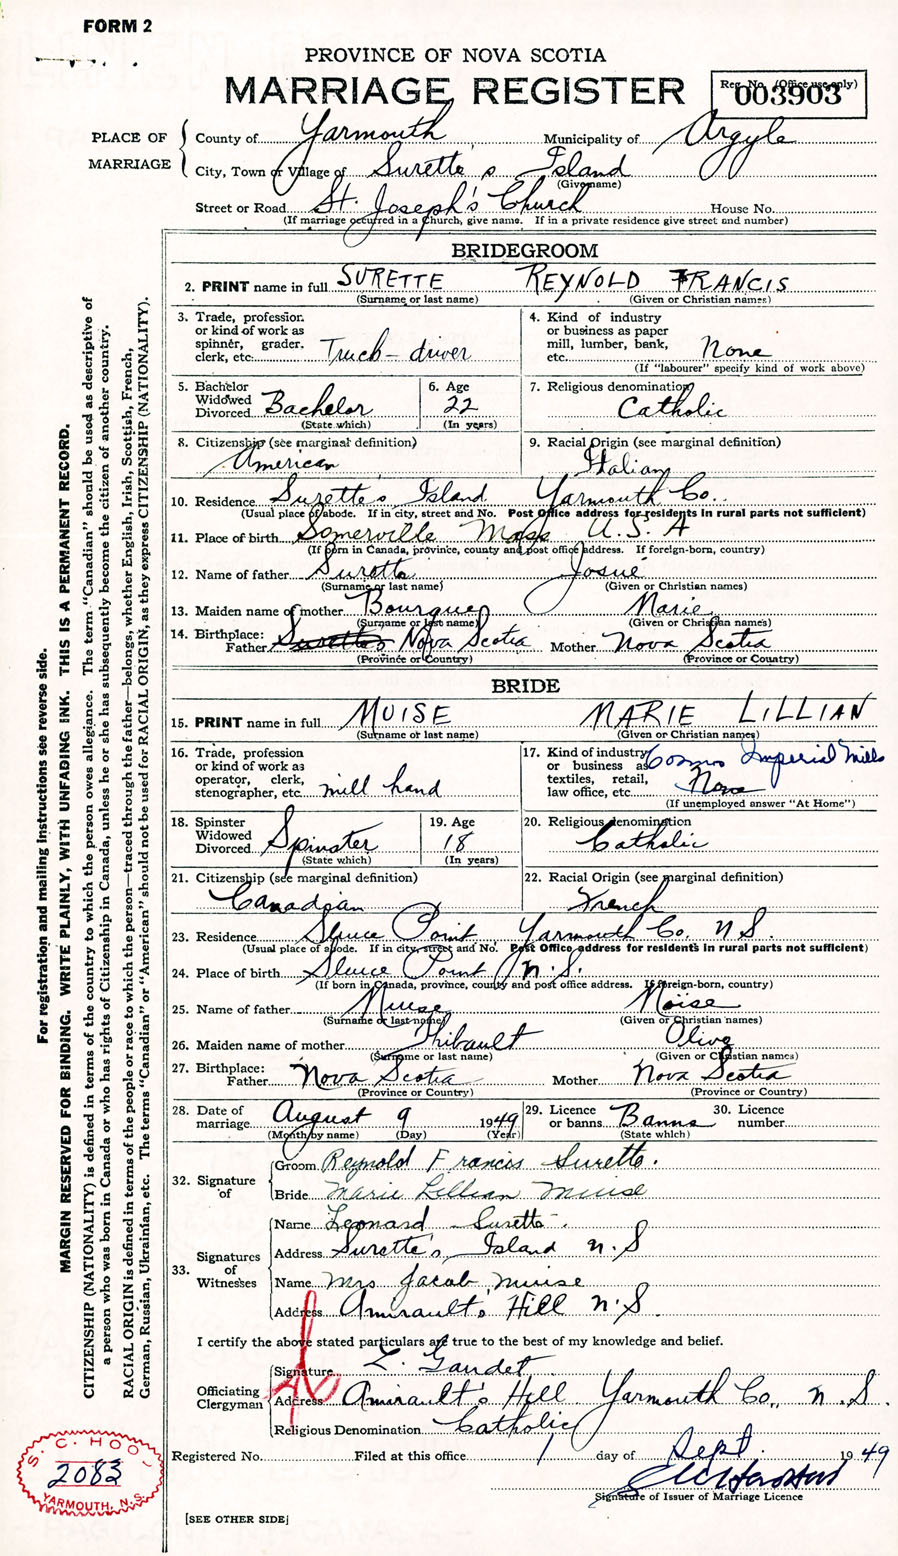 FORM 2
PROVINCE OF NOVA SCOTIA
MARRIAGE REGISTER
Reg. No. (Office use only)
003903
PLACE OF MARRIAGE
County of Yarmouth Municipality of Argyle
City, Town or Village of Surette's Island
(Give name)
Street or Road St. Joseph's Church House No.
(If marriage occurred in a Church, give name. If in a private residence give street and number)
BRIDEGROOM
2. PRINT name in full SURETTE REYNOLD FRANCIS
(Surname or last name) (Given or Christian names)
3. Trade, profession or kind of work as spinner, grader, clerk, etc. Truck-driver
4. Kind of industry or business as paper mill, lumber, bank, etc. None
(If "labourer" specify kind of work above)
5. Bachelor Widowed Divorced Bachelor
(State which)
6. Age 22
(In years)
7. Religious denomination Catholic
8. Citizenship (see marginal definition) American
9. Racial Origin (see marginal definition) Italian
10. Residence Surette's Island Yarmouth Co.
(Usual place of abode. If in city, street and No. Post Office address for residents in rural parts not sufficient)
11. Place of birth Somerville Mass U.S.A
(If born in Canada, province, county and post office address. If foreign-born, country)
12. Name of father Surette Josué
(Surname or last name) (Given or Christian names)
13. Maiden name of mother Bourque Marie
(Surname or last name) (Given or Christian names)
14. Birthplace: Father Nova Scotia Mother Nova Scotia
(Province or Country) (Province or Country)
BRIDE
15. PRINT name in full MUISE MARIE LILLIAN
(Surname or last name) (Given or Christian names)
16. Trade, profession or kind of work as operator, clerk, stenographer, etc. mill hand
17. Kind of industry or business as textiles, retail, law office, etc. Cosmos Imperial Mills
None
(If unemployed answer "At Home")
18. Spinster Widowed Divorced Spinster
(State which)
19. Age 18
(In years)
20. Religious denomination Catholic
21. Citizenship (see marginal definition) Canadian
22. Racial Origin (see marginal definition) French
23. Residence Sluice Point Yarmouth Co. N S.
(Usual place of abode. If in city, street and No. Post Office address for residents in rural parts not sufficient)
24. Place of birth Sluice Point N.S.
(If born in Canada, province, county and post office address. If foreign-born, country)
25. Name of father Muise Moïse
(Surname or last name) (Given or Christian names)
26. Maiden name of mother Thibault Olive
(Surname or last name) (Given or Christian names)
27. Birthplace: Father Nova Scotia Mother Nova Scotia
(Province or Country) (Province or Country)
28. Date of marriage August 9 1949
(Month by name) (Day) (Year)
29. Licence or banns Banns
(State which)
30. Licence number
32. Signature of
Groom Reynold Francis Surette.
Bride Marie Lillian Muise
33. Signatures of Witnesses
Name Leonard Surette.
Address Surette's Island N.S
Name Mrs Jacob Muise
Address Amirault's Hill N.S.
I certify the above stated particulars are true to the best of my knowledge and belief.
Officiating Clergyman
Signature L. Gaudet
Address Amirault's Hill Yarmouth Co., N.S.
Religious Denomination Catholic
Registered No. Filed at this office 1 day of Sept. 1949
Signature of Issuer of Marriage Licence
[SEE OTHER SIDE]
For registration and mailing instructions see reverse side.
MARGIN RESERVED FOR BINDING. WRITE PLAINLY, WITH UNFADING INK. THIS IS A PERMANENT RECORD.
CITIZENSHIP (NATIONALITY) is defined in terms of the country to which the person owes allegiance. The term "Canadian" should be used as descriptive of
a person who was born in Canada or who has rights of Citizenship in Canada, unless he or she has subsequently become the citizen of another country.
RACIAL ORIGIN is defined in terms of the people or race to which the person—traced through the father—belongs, whether English, Irish, Scottish, French,
German, Russian, Ukrainian, etc. The terms "Canadian" or "American" should not be used for RACIAL ORIGIN, as they express CITIZENSHIP (NATIONALITY).
S. C. HOO
2083
YARMOUTH, N.S.